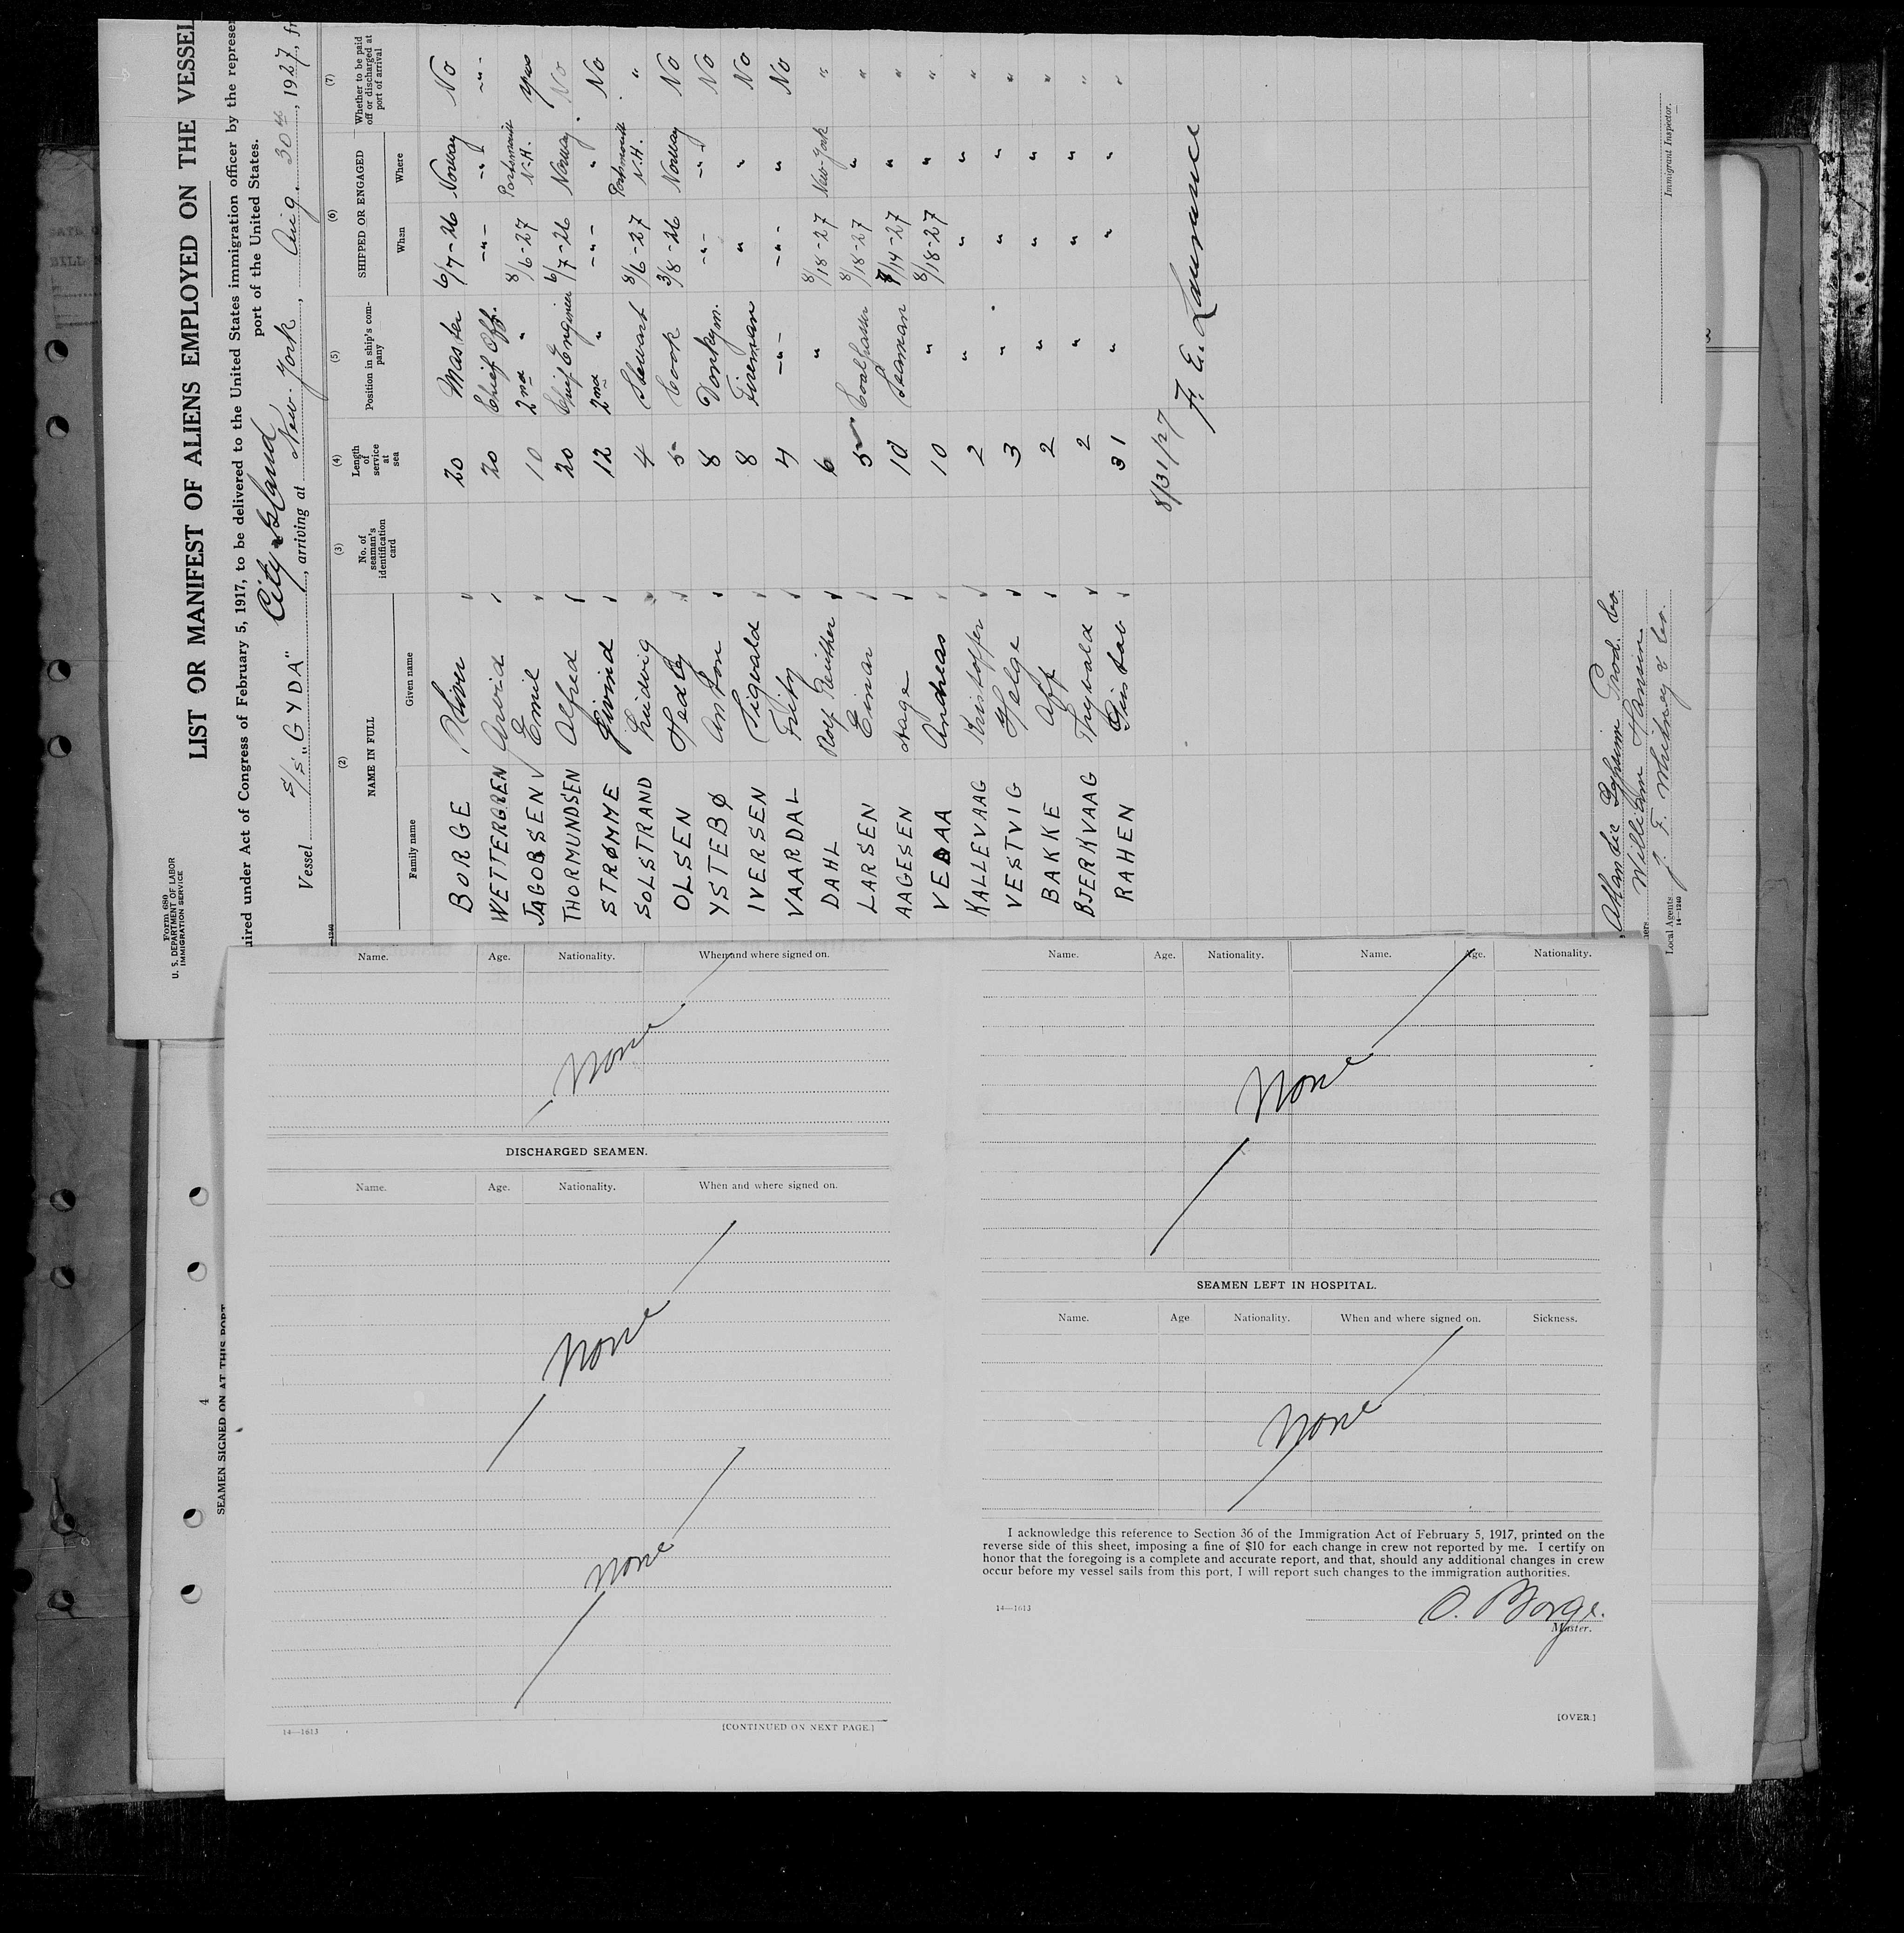 Form 680
U. S. DEPARTMENT OF LABOR
IMMIGRATION SERVICE
LIST OR MANIFEST OF ALIENS EMPLOYED ON THE VESSEL
uired under Act of Congress of February 5, 1917, to be delivered to the United States immigration officer by the represe
port of the United States.
City Island
Vessel S/S. "GYDA", arriving at New-York, Aug. 30th, 1927, fr
(2) (3) (4) (5) (6) (7)
NAME IN FULL
No. of seaman's identification card
Length of service at sea
Position in ship's company
SHIPPED OR ENGAGED
Whether to be paid off or discharged at port of arrival
Family name Given name When Where
BORGE 20 Master 6/7-26 Norway No
WETTERGREN Arvid 20 Chief Off. -"- -"- -"-
JAGOBSEN Emil 10 2nd " 8/6-27 Portsmouth N.H. yes
THORMUNDSEN Alfred 20 Chief Engineer 6/7-26 Norway. No
STRØMME Eivind 12 2nd " -"- " No
SOLSTRAND Ludvig 4 Stewart 8/6-27 Portsmouth N.H. "
OLSEN Hedly 5 Cook 3/8-26 Norway No
YSTEBØ Anton 8 Donkym. -"- -"- No
IVERSEN Sigvald 8 Fireman " " No
VAARDAL Fritz 4 -"- -"- " No
DAHL Rolf Reither 6 " 8/18-27 New-York "
LARSEN Einar 5 Coalpasser 8/18-27 " "
AAGESEN Aage 10 Seaman 8/14-27 " "
VEDAA Andreas 10 " 8/18-27 " "
KALLEVAAG Kristoffer 2 " " " "
VESTVIG Helge 3 " " " "
BAKKE Alf 2 " " " "
BJERKVAAG Thorvald 2 " " " "
RAHEN Gustav 31 " " " "
8/31/27
F. E. Lawrance
Atlantic Gypsum Prod. Co.
ners William Hansen
Local Agents J. F. Whitney & Co.
14—1240
Immigrant Inspector.
4
SEAMEN SIGNED ON AT THIS PORT
Name. Age. Nationality. When and where signed on.
None
DISCHARGED SEAMEN.
Name. Age. Nationality. When and where signed on.
None
None
14—1613
[CONTINUED ON NEXT PAGE.]
Name. Age. Nationality. Name. Age. Nationality.
None
SEAMEN LEFT IN HOSPITAL.
Name. Age Nationality. When and where signed on. Sickness.
None
I acknowledge this reference to Section 36 of the Immigration Act of February 5, 1917, printed on the
reverse side of this sheet, imposing a fine of $10 for each change in crew not reported by me. I certify on
honor that the foregoing is a complete and accurate report, and that, should any additional changes in crew
occur before my vessel sails from this port, I will report such changes to the immigration authorities.
14—1613
O. Borge.
Master.
[OVER.]